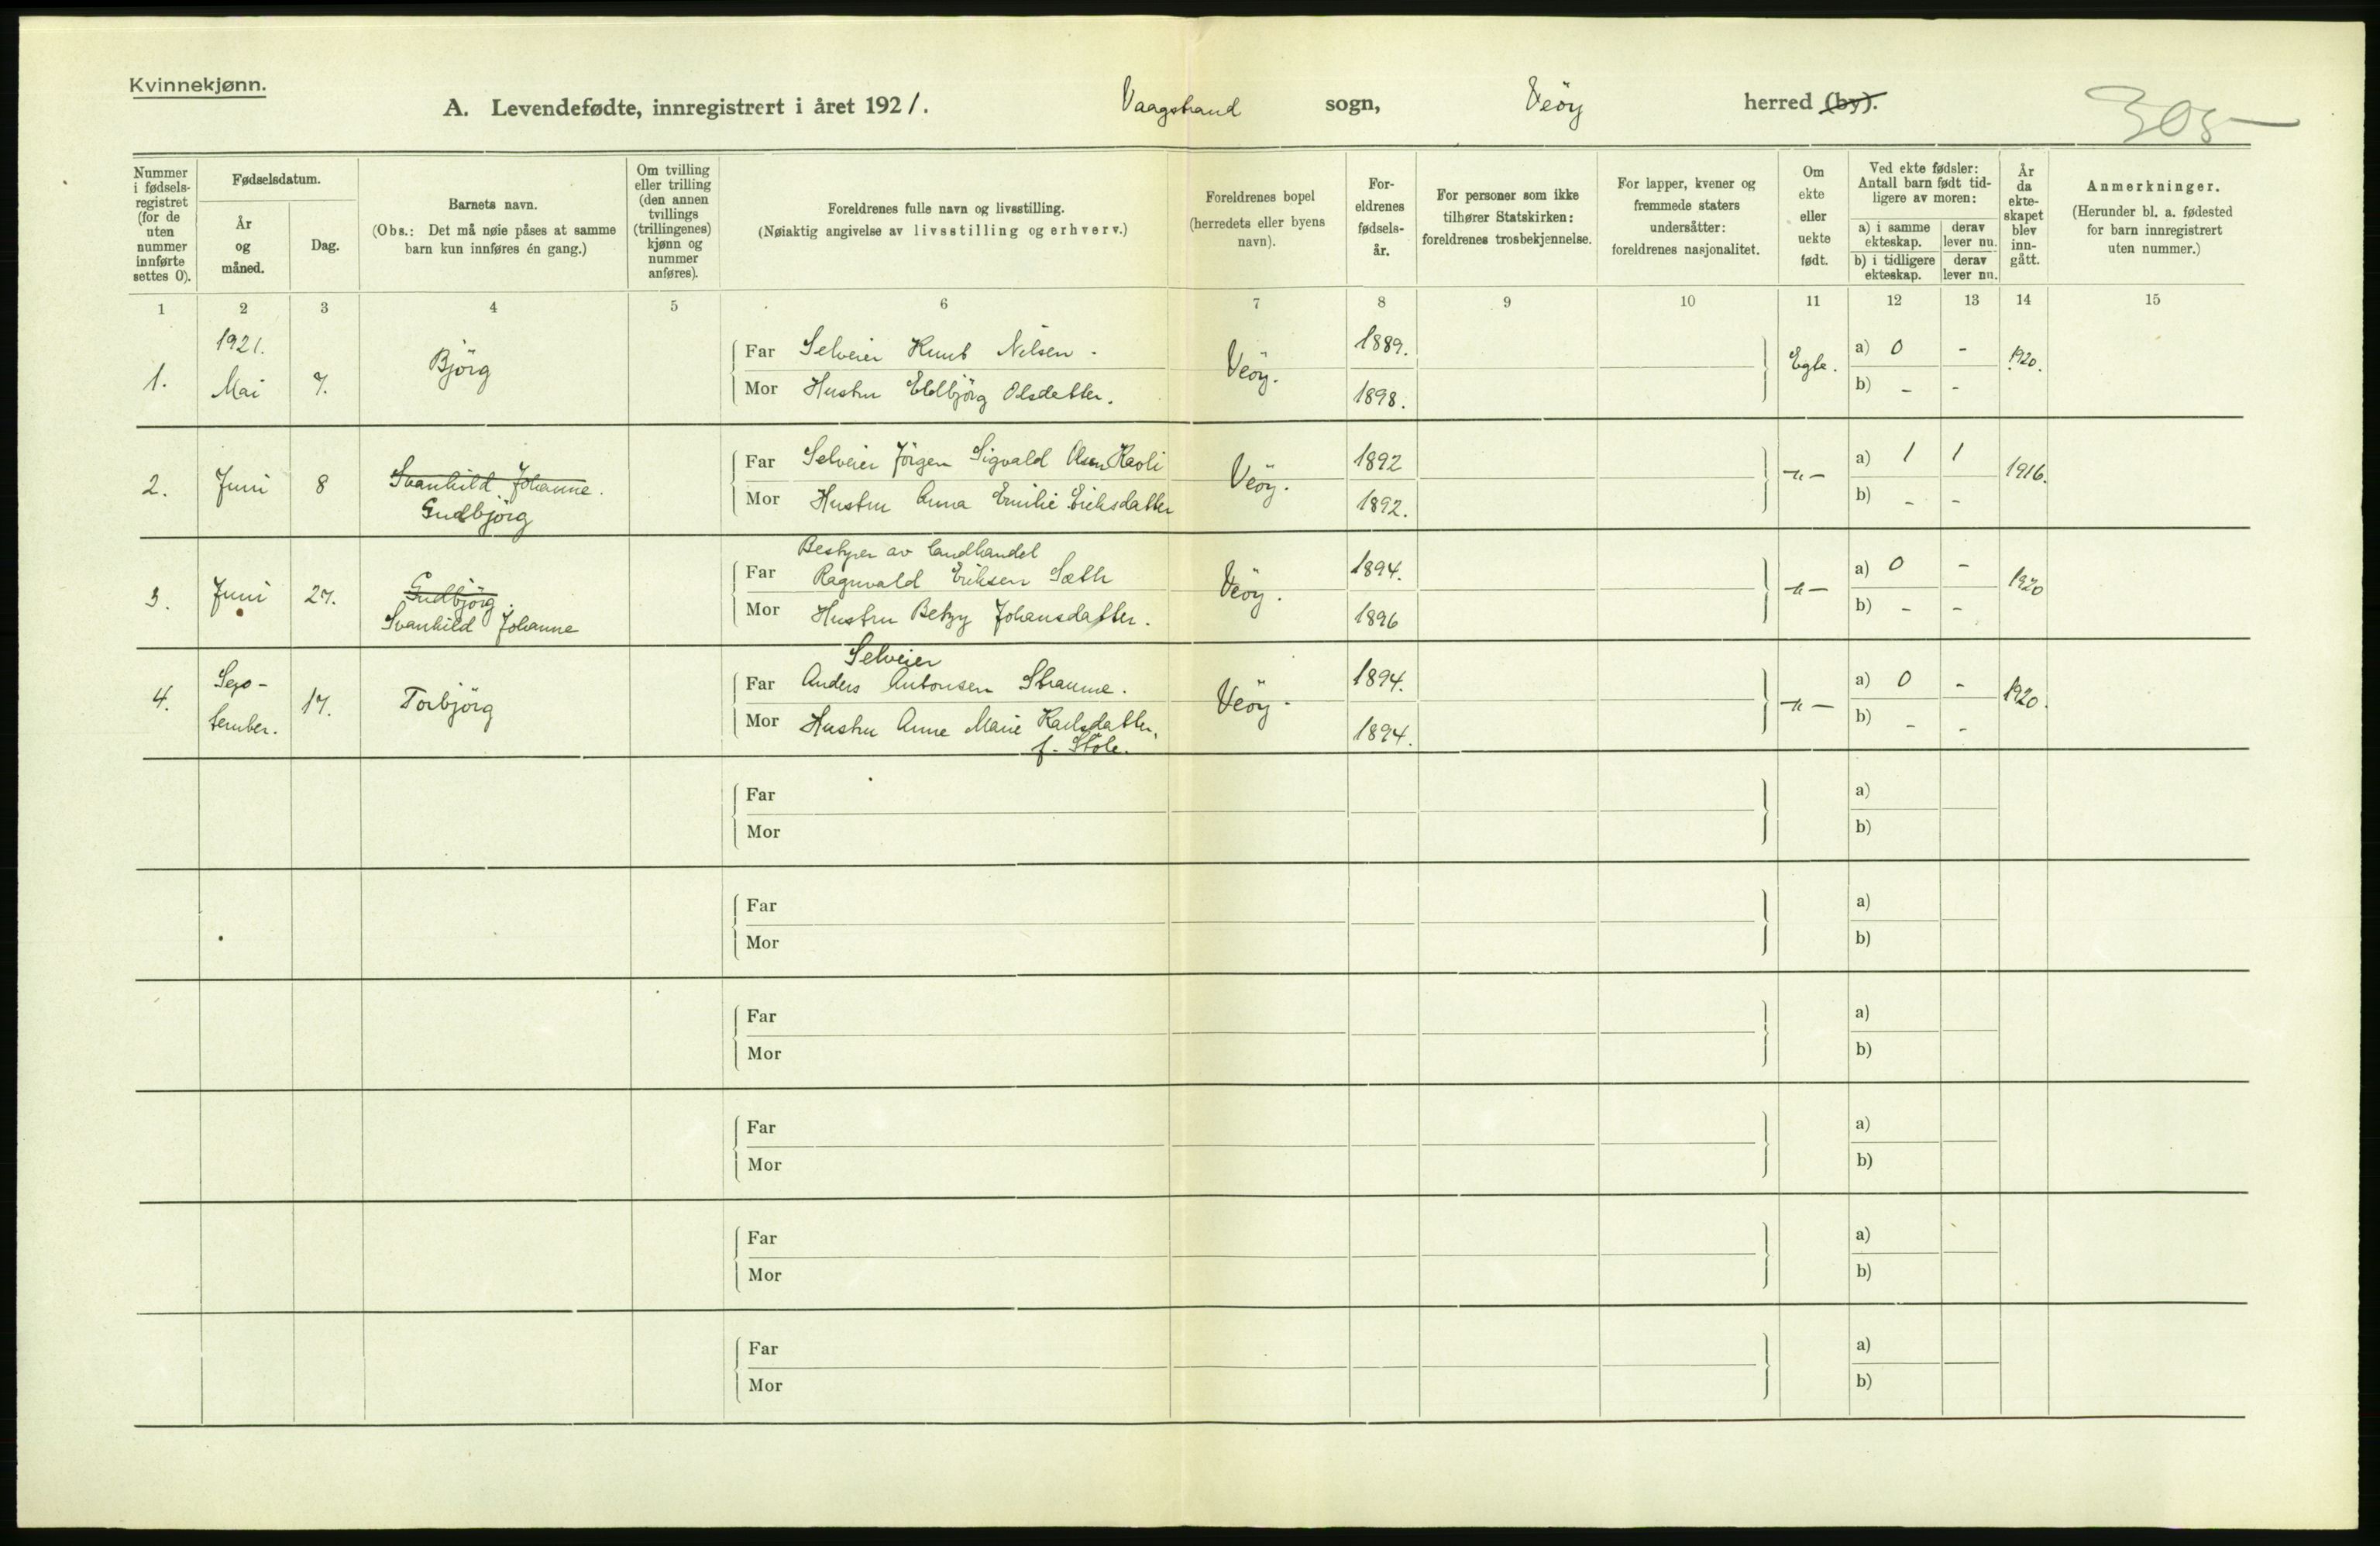 Kvinnekjønn.
A. Levendefødte, innregistrert i året 1921. Vaagstrand sogn, Veöy herred (by). 305
Nummer i fødselsregistret (for de uten nummer innførte settes 0).
Fødselsdatum.
År og måned.
Dag.
Barnets navn.
(Obs.: Det må nøie påses at samme barn kun innføres én gang.)
Om tvilling eller trilling (den annen tvillings (trillingenes) kjønn og nummer anføres).
Foreldrenes fulle navn og livsstilling.
(Nøiaktig angivelse av livsstilling og erhverv.)
Foreldrenes bopel (herredets eller byens navn).
Foreldrenes fødselsår.
For personer som ikke tilhører Statskirken: foreldrenes trosbekjennelse.
For lapper, kvener og fremmede staters undersåtter: foreldrenes nasjonalitet.
Om ekte eller uekte født.
Ved ekte fødsler: Antall barn født tidligere av moren:
a) i samme ekteskap. derav lever nu.
b) i tidligere ekteskap. derav lever nu.
År da ekteskapet blev inngått.
Anmerkninger.
(Herunder bl. a. fødested for barn innregistrert uten nummer.)
1 2 3 4 5 6 7 8 9 10 11 12 13 14 15
1921.
1. Mai 7. Björg
Far Selveier Knut Nilsen. Veöy. 1889. Egte. a) 0 - 1920.
Mor Hustru Eldbjörg Olsdatter. 1898. b) - -
2. Juni 8 Svanhild Johanne.
Gudbjörg
Far Selveier Jörgen Sigvald Olsen Kavli Veöy. 1892 -"- a) 1 1 1916.
Mor Hustru Anna Emilie Eriksdatter 1892. b) - -
3. Juni 27. Gudbjörg.
Svanhild Johanne
Bestyrer av landhandel
Far Ragnvald Eriksen Sæth Veöy. 1894. -"- a) 0 - 1920
Mor Hustru Betzy Johansdatter. 1896 b) - -
4. September. 17. Torbjörg
Selveier
Far Anders Antonsen Straume. Veöy. 1894. -"- a) 0 - 1920.
Mor Hustru Anne Marie Karlsdatter, 1894. b) - -
f. Stole.
Far a)
Mor b)
Far a)
Mor b)
Far a)
Mor b)
Far a)
Mor b)
Far a)
Mor b)
Far a)
Mor b)